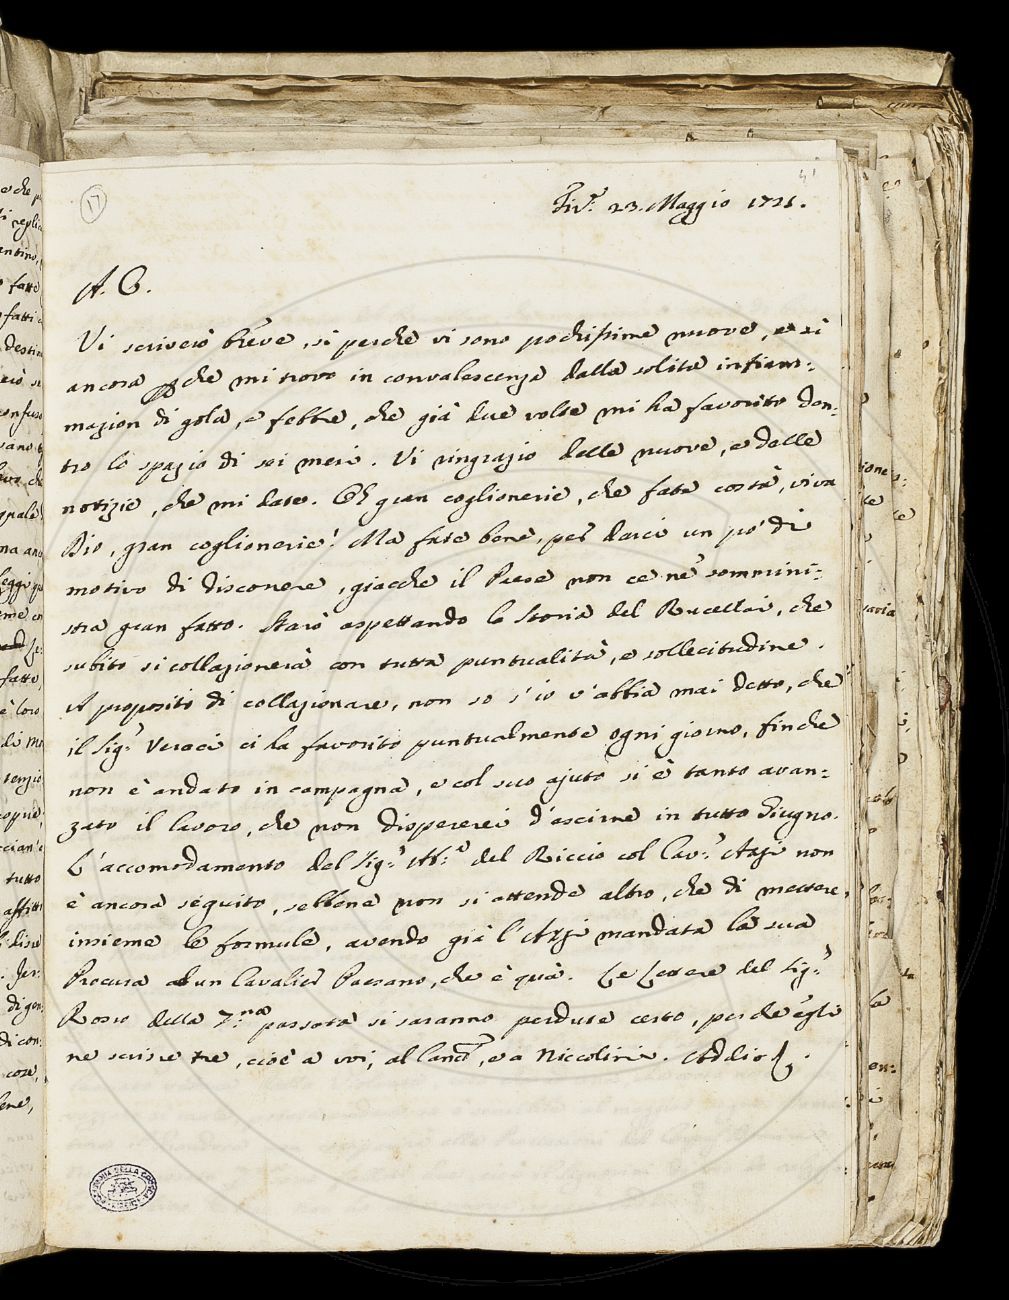 17
41
Fir.e 23. Maggio 1721.
A. C.
Vi scriverò breve, sì perche vi sono pochissime nuove, e sì
ancora che mi trovo in convalescenza dalla solita infiam:
mazion di gola, e febbre, che già due volte mi ha favorito den:
tro lo spazio di sei mesi. Vi ringrazio delle nuove, e delle
notizie, che mi date. Oh gran coglionerie, che fate costà, viva
Dio, gran coglionerie! Ma fate bene, per darci un pò di
motivo di discorrere, giacche il Paese non ce ne sommini:
stra gran fatto. Starò aspettando la Storia del Rucellai, che
subito si collazionerà con tutta puntualità, e sollecitudine.
A proposito di collazionare, non so s'io v'abbia mai detto, che
il Sig.r Veraci ci ha favorito puntualmente ogni giorno, finche
non è andato in campagna, e col suo ajuto si è tanto avan:
zato il lavoro, che non dispererei d'uscirne in tutto Giugno.
L'accomodamento del Sig.r Ab.e del Riccio col Cav.r Azzi non
è ancora seguito, sebbene non si attende altro, che di mettere
insieme le formule, avendo già l'Azzi mandata la sua
Procura ad un Cavalier Paesano, che è quà. Le Lettere del Sig.r
Rosso della 7.na passata si saranno perdute certo, perche egli
ne scrisse tre, cioè a voi, al Canc.re, e a Niccolini. Addio.